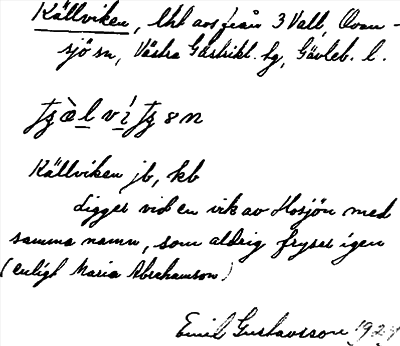 Källviken, lht avs från 3 Vall, Ovan-
sjö sn, Västra Gästrikl. hg, Gävleb. l.
Källviken jb, kb
Ligger vid en vik av Hosjön med
samma namn, som aldrig fryser igen
(enligt Maria Abrahamson)
Emil Gustavsson